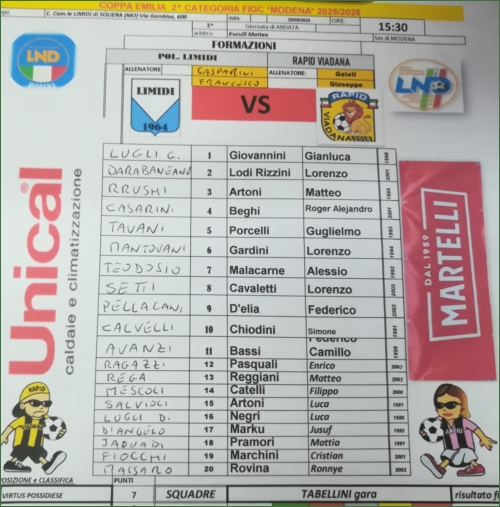 COPPA EMILIA 2^ CATEGORIA FIGC "MODENA" 2025/2026
C. Com.le LIMIDI di SOLIERA (MO) Via Gambisa, 600 data ORE: 15:30
3^ Giornata di ANDATA
arbitro: Kurulli Matteo Sez di MODENA
FORMAZIONI
POL. LIMIDI RAPID VIADANA
ALLENATORE GASPARINI FRANCESCO ALLENATORE: Galeti Giuseppe
LND
LIMIDI 1964
VS
RAPID VIADANA
LND
LUGLI G. 1 Giovannini Gianluca
DARABANEANU 2 Lodi Rizzini Lorenzo
RRUSHI 3 Artoni Matteo
CASARINI 4 Beghi Roger Alejandro
TAVANI 5 Porcelli Guglielmo
MANTOVANI 6 Gardini Lorenzo
TEODOSIO 7 Malacarne Alessio
SETTI 8 Cavaletti Lorenzo
PELLACANI 9 D'elia Federico
CALVELLI 10 Chiodini Simone Federico
AVANZI 11 Bassi Camillo
RAGAZZI 12 Pasquali Enrico
REGA 13 Reggiani Matteo
MESCOLI 14 Catelli Filippo
SALVIOLI 15 Artoni Luca
LUGLI D. 16 Negri Luca
D'ANGELO 17 Marku Jusuf
JAOUADI 18 Pramori Mattia
FIOCCHI 19 Marchini Cristian
MASSARO 20 Rovina Ronnye
Unical
caldaie e climatizzazione
DAL 1959
MARTELLI
RAPID
POSIZIONE e CLASSIFICA PUNTI
VIRTUS POSSIDIESE 7 SQUADRE TABELLINI gara risultato